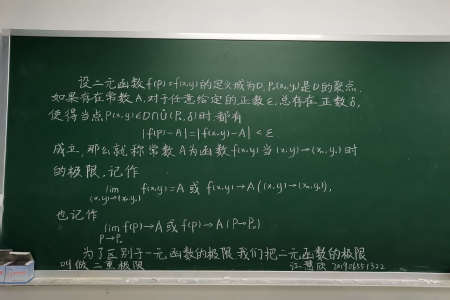 设二元函数 f(P)=f(x,y)的定义域为D, P₀(x₀,y₀)是D的聚点.
如果存在常数A,对于任意给定的正数ε,总存在正数δ,
使得当点P(x,y)∈D∩Ů(P₀,δ)时都有
|f(P)-A|=|f(x,y)-A|<ε
成立,那么就称常数A为函数f(x,y)当(x,y)→(x₀,y₀)时
的极限,记作
lim f(x,y)=A 或 f(x,y)→A((x,y)→(x₀,y₀)),
(x,y)→(x₀,y₀)
也记作
lim f(P)→A 或 f(P)→A(P→P₀)
P→P₀
为了区别于一元函数的极限我们把二元函数的极限
叫做二重极限 江慧欣